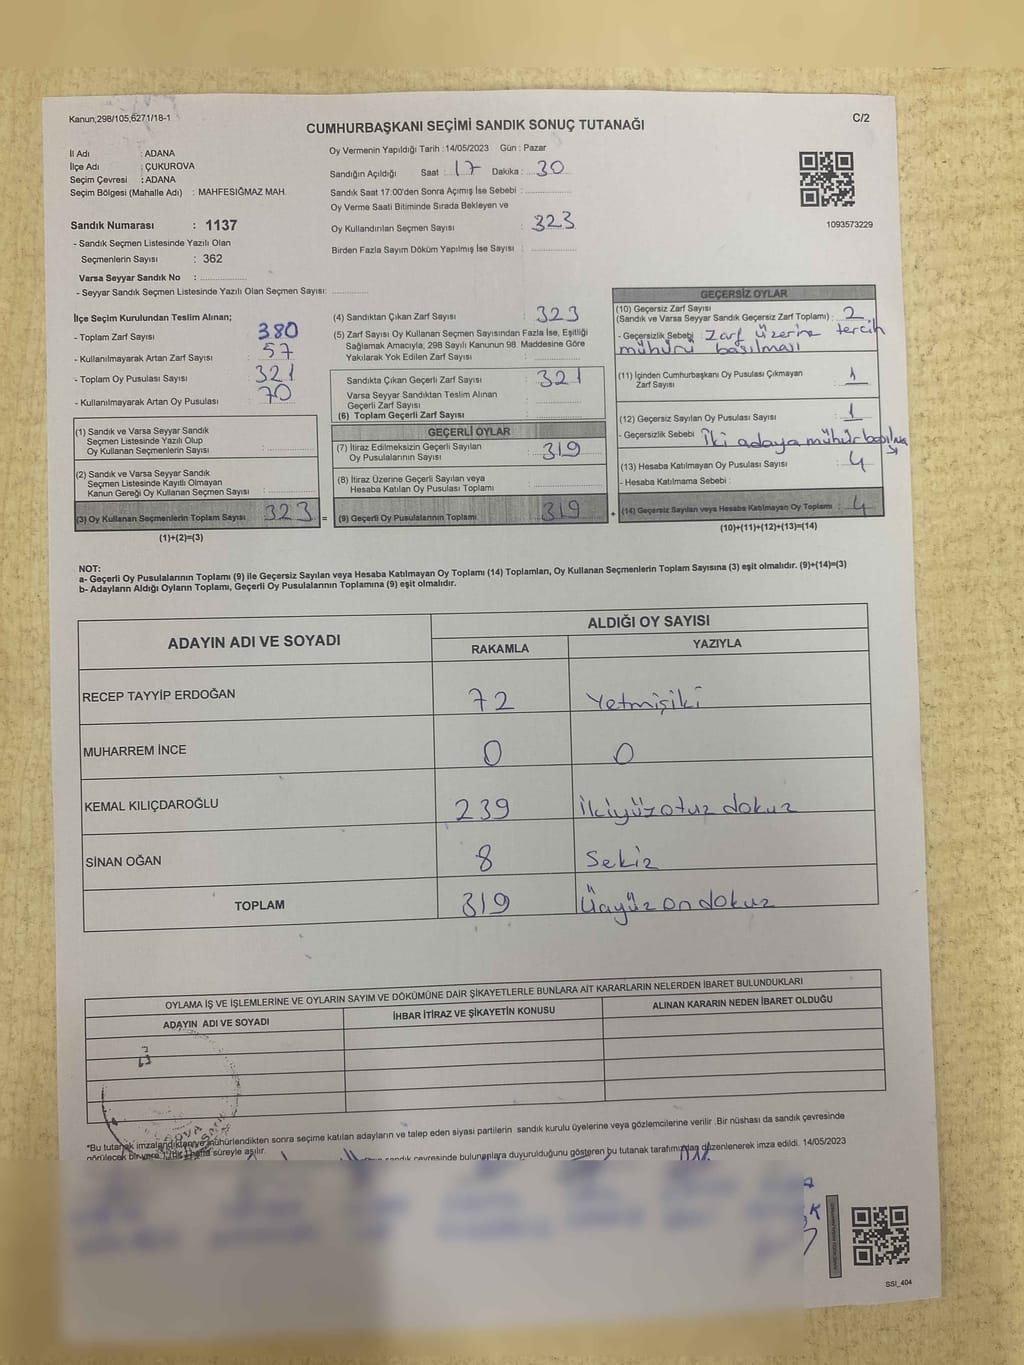 Kanun;298/105;6271/18-1
C/2
CUMHURBAŞKANI SEÇİMİ SANDIK SONUÇ TUTANAĞI
İl Adı : ADANA
İlçe Adı : ÇUKUROVA
Seçim Çevresi : ADANA
Seçim Bölgesi (Mahalle Adı) : MAHFESIĞMAZ MAH.
Sandık Numarası : 1137
- Sandık Seçmen Listesinde Yazılı Olan
Seçmenlerin Sayısı : 362
Varsa Seyyar Sandık No :
- Seyyar Sandık Seçmen Listesinde Yazılı Olan Seçmen Sayısı:
Oy Vermenin Yapıldığı Tarih :14/05/2023 Gün : Pazar
Sandığın Açıldığı Saat : 17 Dakika : 30
Sandık Saat 17:00'den Sonra Açımış İse Sebebi :
Oy Verme Saati Bitiminde Sırada Bekleyen ve
Oy Kullandırılan Seçmen Sayısı : 323
Birden Fazla Sayım Döküm Yapılmış İse Sayısı :
1093573229
İlçe Seçim Kurulundan Teslim Alınan;
- Toplam Zarf Sayısı : 380
- Kullanılmayarak Artan Zarf Sayısı : 57
- Toplam Oy Pusulası Sayısı : 321
- Kullanılmayarak Artan Oy Pusulası : 70
(1) Sandık ve Varsa Seyyar Sandık
Seçmen Listesinde Yazılı Olup
Oy Kullanan Seçmenlerin Sayısı :
(2) Sandık ve Varsa Seyyar Sandık
Seçmen Listesinde Kayıtlı Olmayan
Kanun Gereği Oy Kullanan Seçmen Sayısı :
(3) Oy Kullanan Seçmenlerin Toplam Sayısı 323 =
(1)+(2)=(3)
(4) Sandıktan Çıkan Zarf Sayısı : 323
(5) Zarf Sayısı Oy Kullanan Seçmen Sayısından Fazla İse, Eşitliği
Sağlamak Amacıyla, 298 Sayılı Kanunun 98. Maddesine Göre
Yakılarak Yok Edilen Zarf Sayısı :
Sandıkta Çıkan Geçerli Zarf Sayısı : 321
Varsa Seyyar Sandıktan Teslim Alınan
Geçerli Zarf Sayısı :
(6) Toplam Geçerli Zarf Sayısı :
GEÇERLİ OYLAR
(7) İtiraz Edilmeksizin Geçerli Sayılan
Oy Pusulalarının Sayısı : 319
(8) İtiraz Üzerine Geçerli Sayılan veya
Hesaba Katılan Oy Pusulası Toplamı :
(9) Geçerli Oy Pusulalarının Toplamı : 319 +
GEÇERSİZ OYLAR
(10) Geçersiz Zarf Sayısı
(Sandık ve Varsa Seyyar Sandık Geçersiz Zarf Toplamı) : 2
- Geçersizlik Sebebi : Zarf üzerine tercih
mühürü basılması
(11) İçinden Cumhurbaşkanı Oy Pusulası Çıkmayan
Zarf Sayısı : 1
(12) Geçersiz Sayılan Oy Pusulası Sayısı : 1
- Geçersizlik Sebebi : İki adaya mühür basılması
(13) Hesaba Katılmayan Oy Pusulası Sayısı : 4
- Hesaba Katılmama Sebebi :
(14) Geçersiz Sayılan veya Hesaba Katılmayan Oy Toplamı : 4
(10)+(11)+(12)+(13)=(14)
NOT:
a- Geçerli Oy Pusulalarının Toplamı (9) ile Geçersiz Sayılan veya Hesaba Katılmayan Oy Toplamı (14) Toplamları, Oy Kullanan Seçmenlerin Toplam Sayısına (3) eşit olmalıdır. (9)+(14)=(3)
b- Adayların Aldığı Oyların Toplamı, Geçerli Oy Pusulalarının Toplamına (9) eşit olmalıdır.
ADAYIN ADI VE SOYADI
ALDIĞI OY SAYISI
RAKAMLA YAZIYLA
RECEP TAYYİP ERDOĞAN 72 Yetmişiki
MUHARREM İNCE 0 0
KEMAL KILIÇDAROĞLU 239 İkiyüzotuz dokuz
SİNAN OĞAN 8 Sekiz
TOPLAM 319 Üçyüz on dokuz
OYLAMA İŞ VE İŞLEMLERİNE VE OYLARIN SAYIM VE DÖKÜMÜNE DAİR ŞİKAYETLERLE BUNLARA AİT KARARLARIN NELERDEN İBARET BULUNDUKLARI
ADAYIN ADI VE SOYADI İHBAR İTİRAZ VE ŞİKAYETİN KONUSU ALINAN KARARIN NEDEN İBARET OLDUĞU
*Bu tutanak imzalandıktan ve mühürlendikten sonra seçime katılan adayların ve talep eden siyasi partilerin sandık kurulu üyelerine veya gözlemcilerine verilir .Bir nüshası da sandık çevresinde
görülecek bir yere 1 (bir) hafta süreyle asılır.
sandık çevresinde bulunanlara duyurulduğunu gösteren bu tutanak tarafımızdan düzenlenerek imza edildi. 14/05/2023
SSI_404